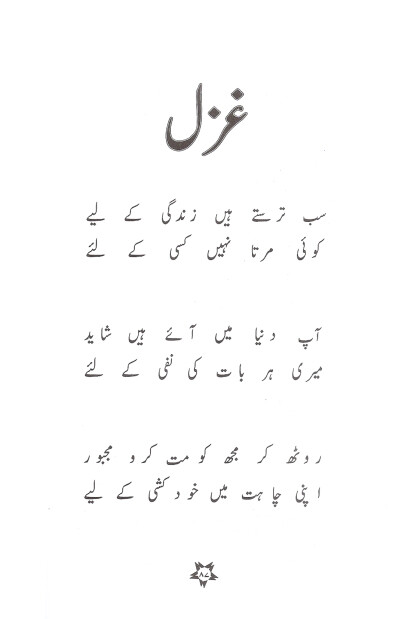 غزل
سب ترستے ہیں زندگی کے لیے
کوئی مرتا نہیں کسی کے لئے
آپ دنیا میں آئے ہیں شاید
میری ہر بات کی نفی کے لئے
روٹھ کر مجھ کو مت کرو مجبور
اپنی چاہت میں خودکشی کے لیے
۸۷